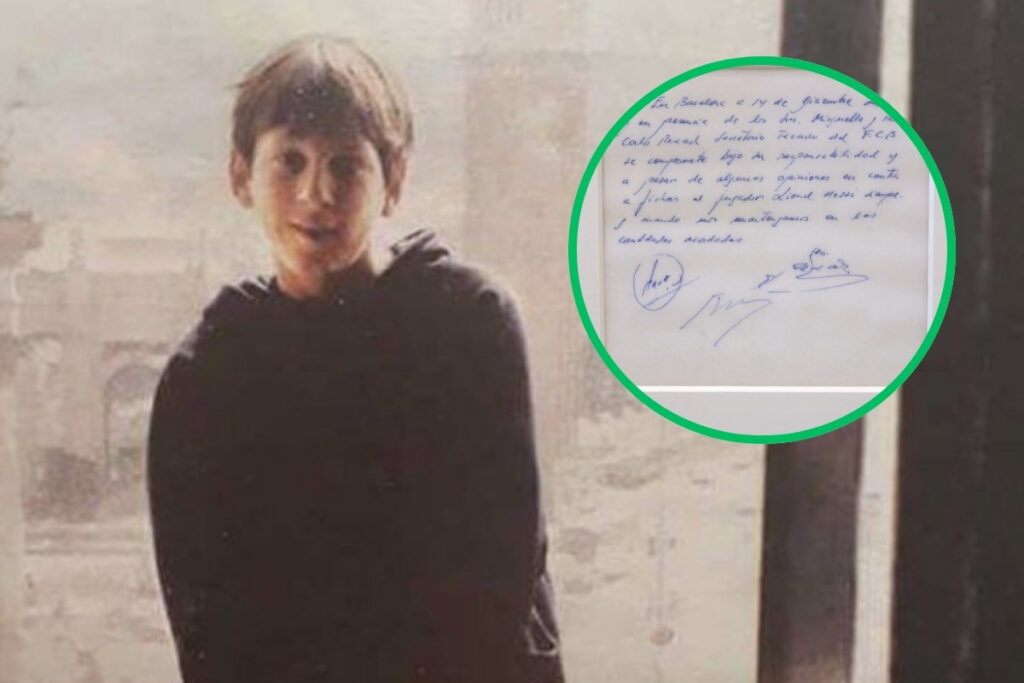 En Barcelona a 14 de Diciembre
en presencia de los Srs. Minguella y
Carles Rexach Secretario Tecnico del F.C.B
se compromete bajo su responsabilidad y
a pesar de algunas opiniones en contra
a fichar al jugador Lionel Messi siempre
y cuando nos mantengamos en las
cantidades acordadas